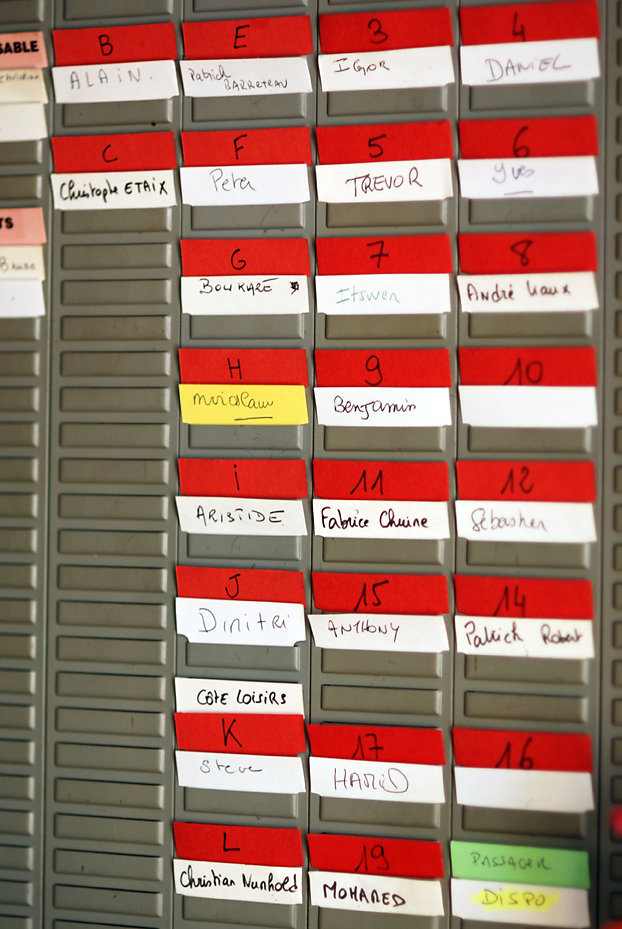 SABLE
TS
B
ALAIN.
C
Christophe ETAIX
E
Patrick
BARRETEAU
F
Peter
G
BOUKARÉ
H
i
ARISTIDE
J
Dimitri
CÔTÉ LOISIRS
K
Steve
L
Christian Nunhold
3
IGOR
5
TREVOR
7
Itswen
9
Benjamin
11
Fabrice Chuine
15
ANTHONY
17
HAMID
19
MOHAMED
4
DANIEL
6
Yves
8
André
10
12
Sébastien
14
Patrick Robert
16
PASSAGER
DISPO